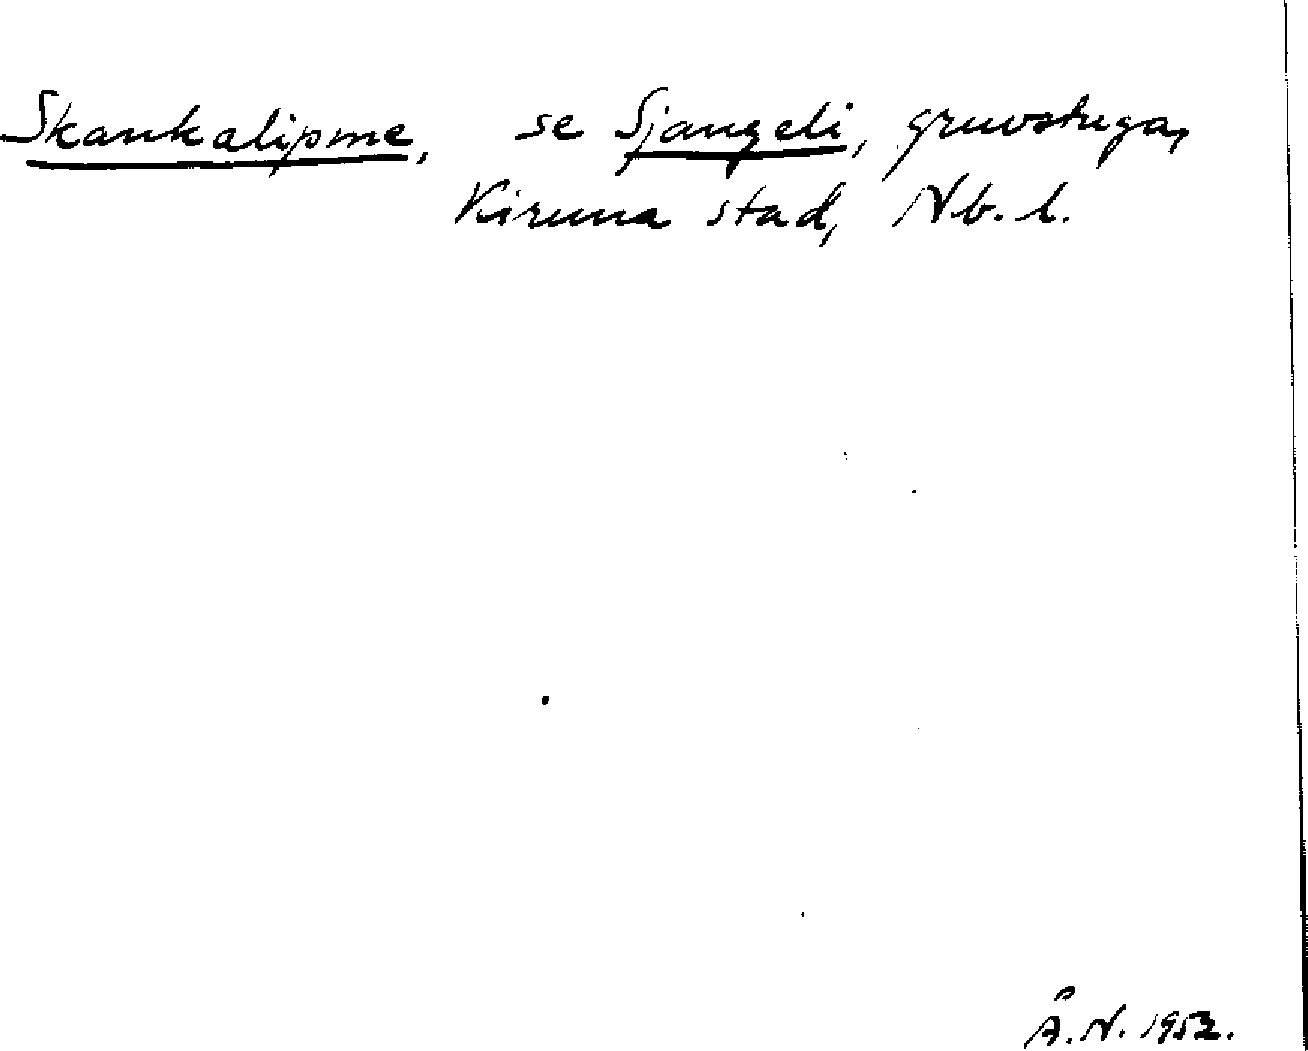 Skankalipme, se Sjangeli, gruvstuga,
Kiruna stad, Nb. l.
Å.N. 1952.